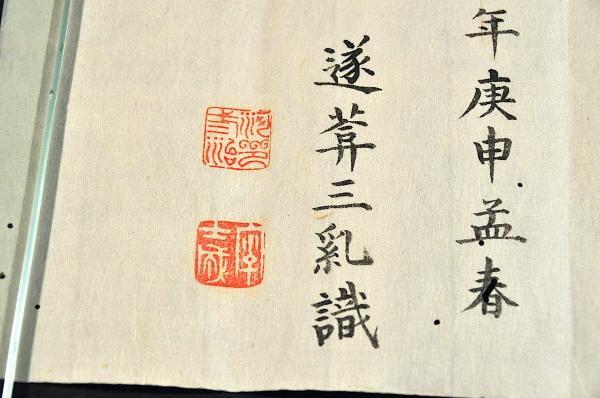 年庚申孟春
遂葊三乿識